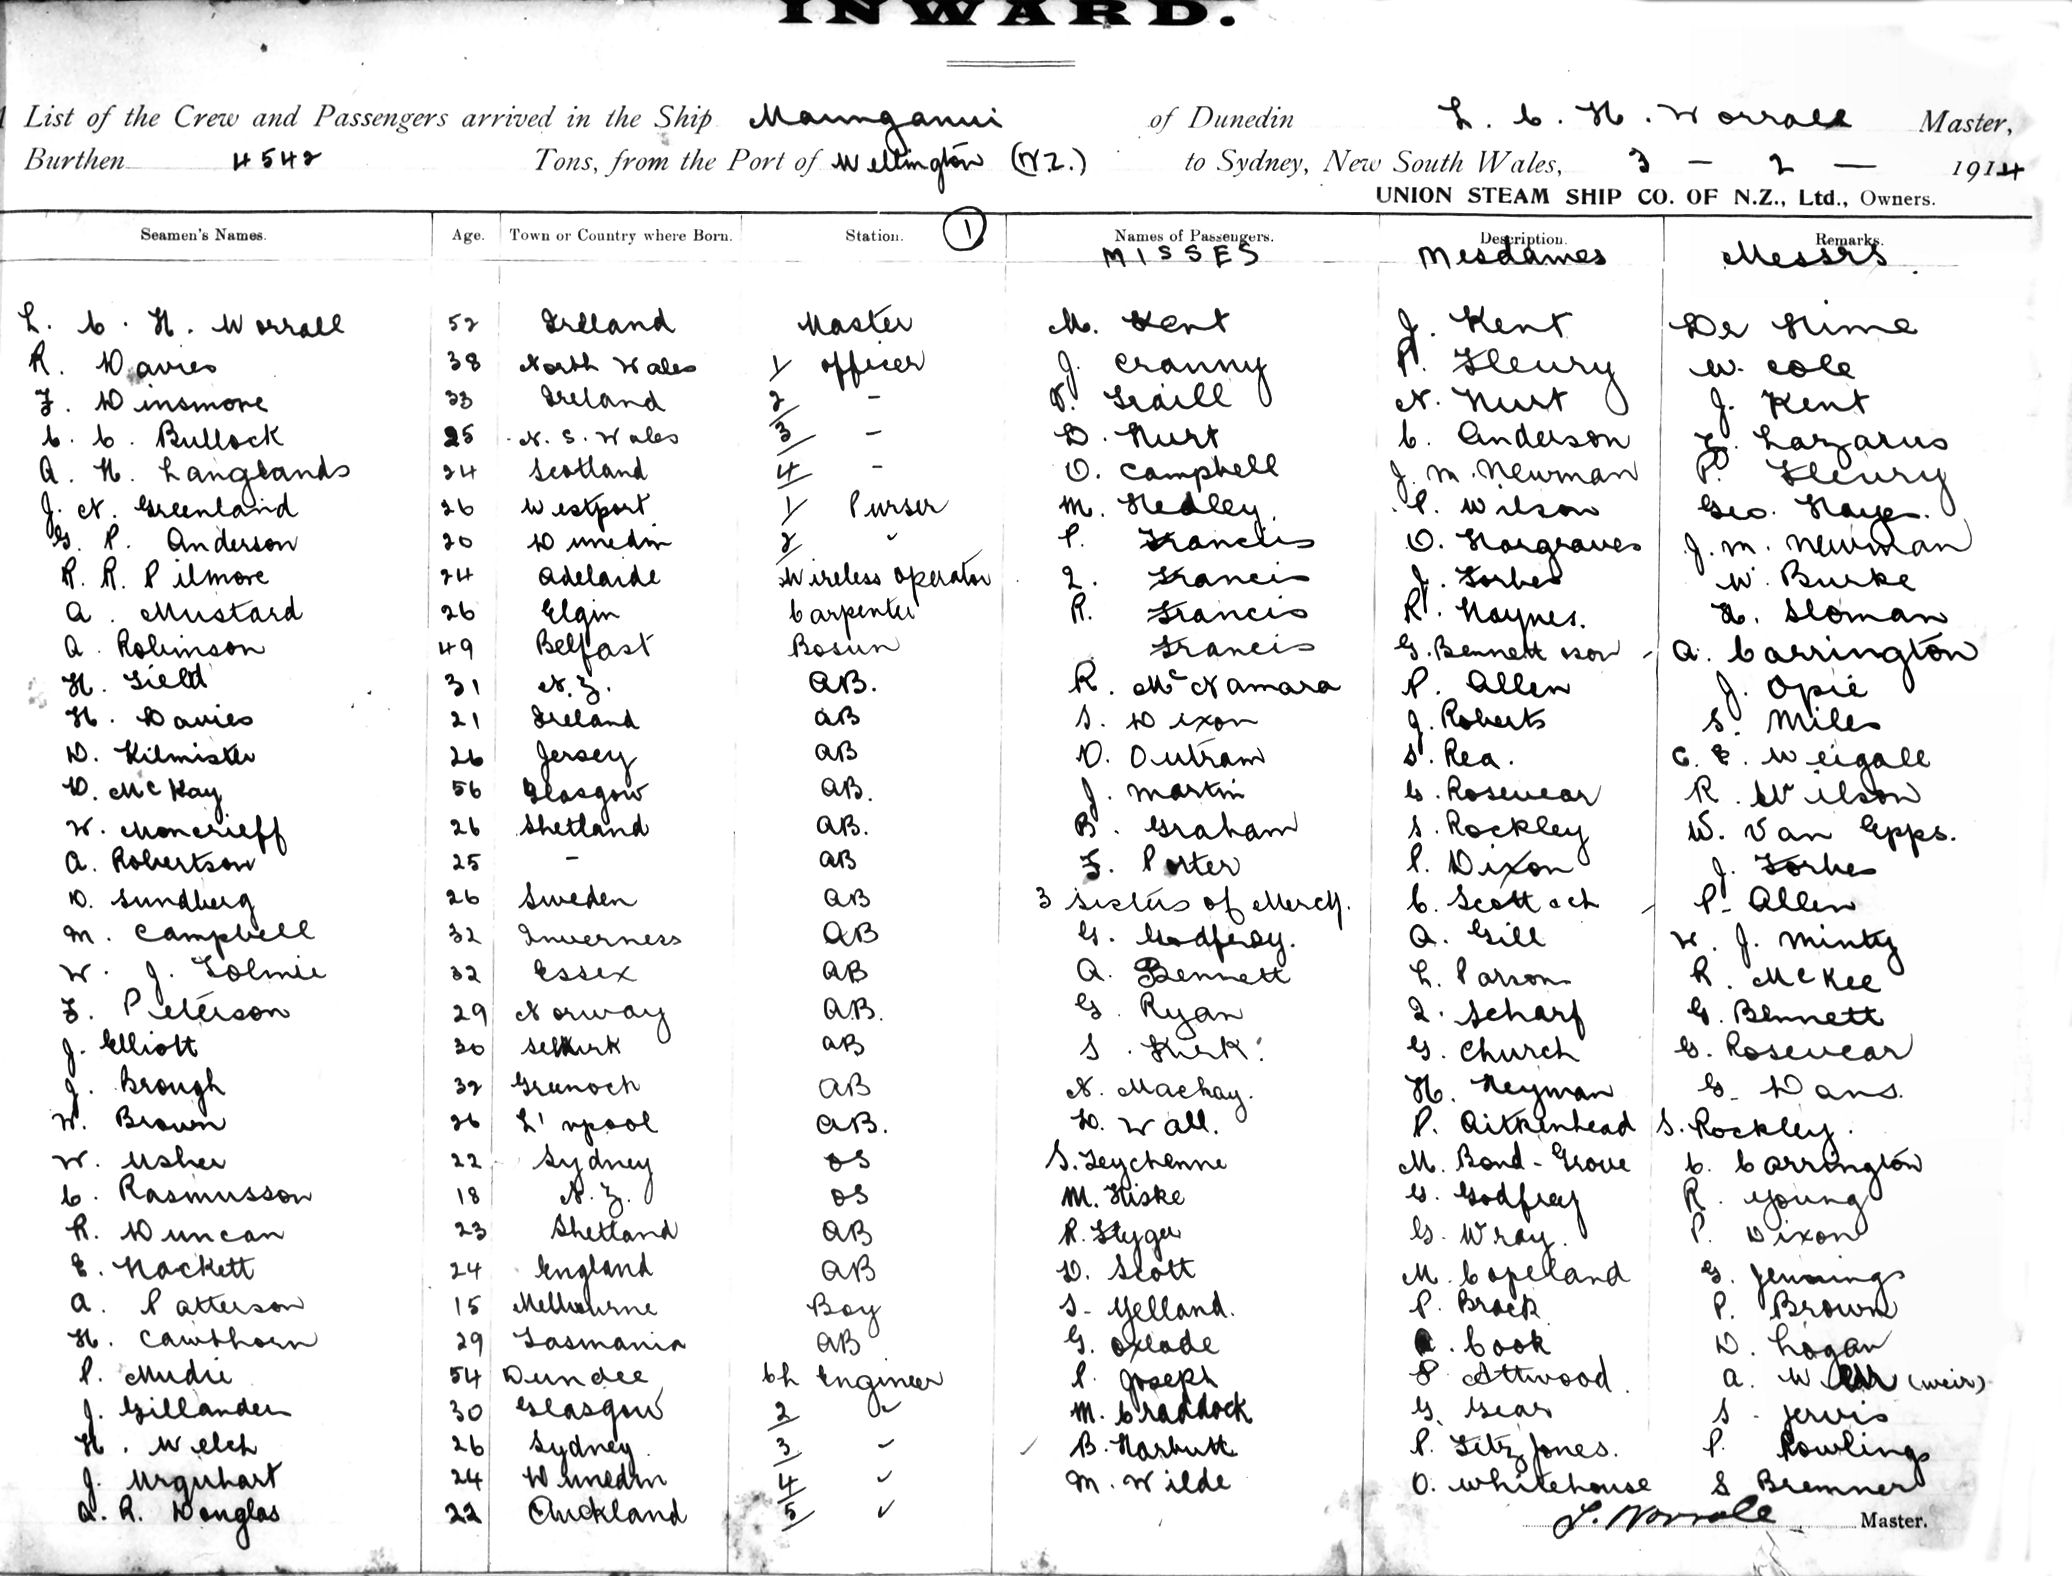 INWARD.
List of the Crew and Passengers arrived in the Ship Maunganui of Dunedin L. C. H. Worrall Master,
Burthen 4542 Tons, from the Port of Wellington (N.Z.) to Sydney, New South Wales, 3 - 2 - 1914
UNION STEAM SHIP CO. OF N.Z., Ltd., Owners.
Seamen's Names. Age. Town or Country where Born. Station. 1 Names of Passengers. Description. Remarks.
MISSES Mesdames Messrs
L. C. H. Worrall 52 Ireland Master M. Kent J. Kent De
R. Davies 38 North Wales 1/ officer J. Cranny P. Fleury W. Cole
F. Dinsmore 33 Ireland 2/ - V. Traill N. Hurt J. Kent
C. C. Bullock 25 N. S. Wales 3/ - D. Hurt C. Anderson Lazarus
A. H. Langlands 24 Scotland 4/ - O. Campbell J. M. Newman P. Fleury
J. N. Greenland 26 Westport 1/ Purser M. Hedley. P. Wilson Geo. Hayes.
G. P. Anderson 20 Dunedin 2/ " P. Francis O. Hargraves J. M. Newman
R. R. Pilmore 24 Adelaide Wireless operator Francis J. Forbes W. Burke
A. Mustard 26 Elgin Carpenter R. Francis R. Haynes. H. Sloman
A. Robinson 49 Belfast Bosun Francis G. Bennett & son A. Carrington
H. Field 31 N.Z. AB. R. McNamara P. Allen J. Opie
H. Davies 21 Ireland AB S. Dixon J. Roberts S. Miles
D. Kilmister 26 Jersey AB V. Outram S. Rea. C. E. Weigall
D. McKay 56 Glasgow AB. J. Martin G. Rosevear R. Wilson
W. Moncrieff 26 Shetland AB. B. Graham S. Rockley W. Van Epps.
A. Robertson 25 - AB F. Porter P. Dixon J. Forbes
D. Sundberg 26 Sweden AB 3 Sisters of Mercy. C. Scott & ch P. Allen
M. Campbell 32 Inverness AB G. Godfrey. A. Gill W. J. Minty
W. J. Tolmie 32 Essex AB A. Bennett L. Parson R. McKee
F. Peterson 29 Norway AB. G. Ryan Scharf G. Bennett
J. Elliott 30 Selkirk AB S. Kirk. G. Church G. Rosevear
J. Brough 32 Greenoch AB N. Mackay. H. Heyman G. Davis.
W. Brown 26 L'vpool AB. D. Wall. P. Aitkenhead S. Rockley.
W. Usher 22 Sydney OS S. Teychenne M. Bond-Grove C. Carrington
C. Rasmusson 18 N.Z. OS M. Hiske G. Godfrey R. Young
R. Duncan 23 Shetland AB R. Flyger G. Wray. P. Dixon
E. Hackett 24 England AB D. Scott M. Copeland G. Jennings
A. Patterson 15 Melbourne Boy S. Yelland. P. Brock P. Brown
H. Cawthorn 29 Tasmania AB G. Oxlade Cook D. Logan
P. Mudie 54 Dundee Ch Engineer P. Joseph Attwood A. Weir (weir)
J. Gillanders 30 Glasgow 2/ " M. Craddock G. Gear S. Jervis
H. Welch 26 Sydney. 3/ " B. Harbutt P. Fitz Jones. P. Rowlings
J. Urquhart 24 Dunedin 4/ " M. Wilde O. Whitehouse S Bremner
A. R. Douglas 22 Auckland 5/ "
L. Worrall Master.